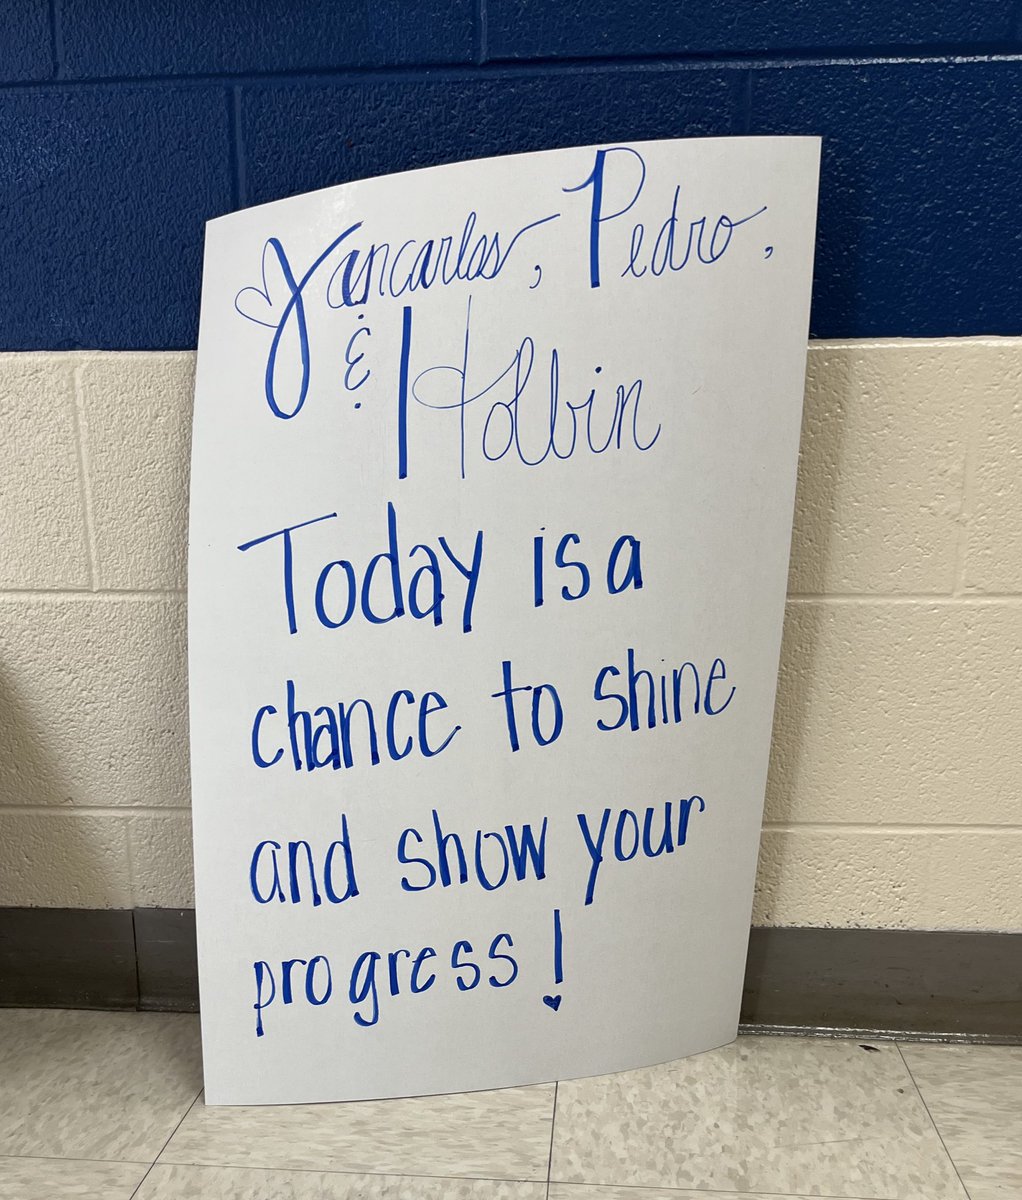 Yancarlos, Pedro,
& Holbin
Today is a
chance to shine
and show your
progress!